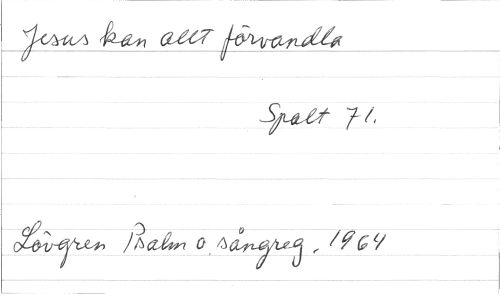 Jesus kan allt förvandla
Spalt 71.
Lövgren Psalm o. sångreg. 1964